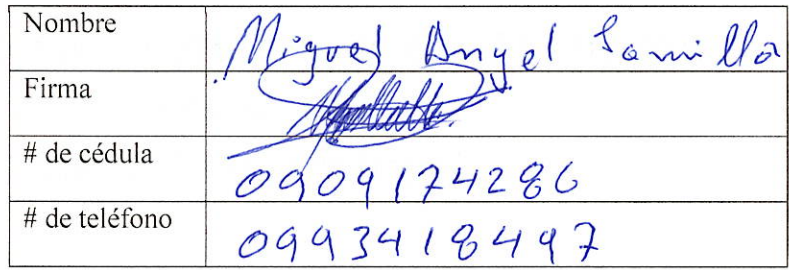 Nombre Miguel Angel
Firma
# de cédula 0909174286
# de teléfono 0993418497